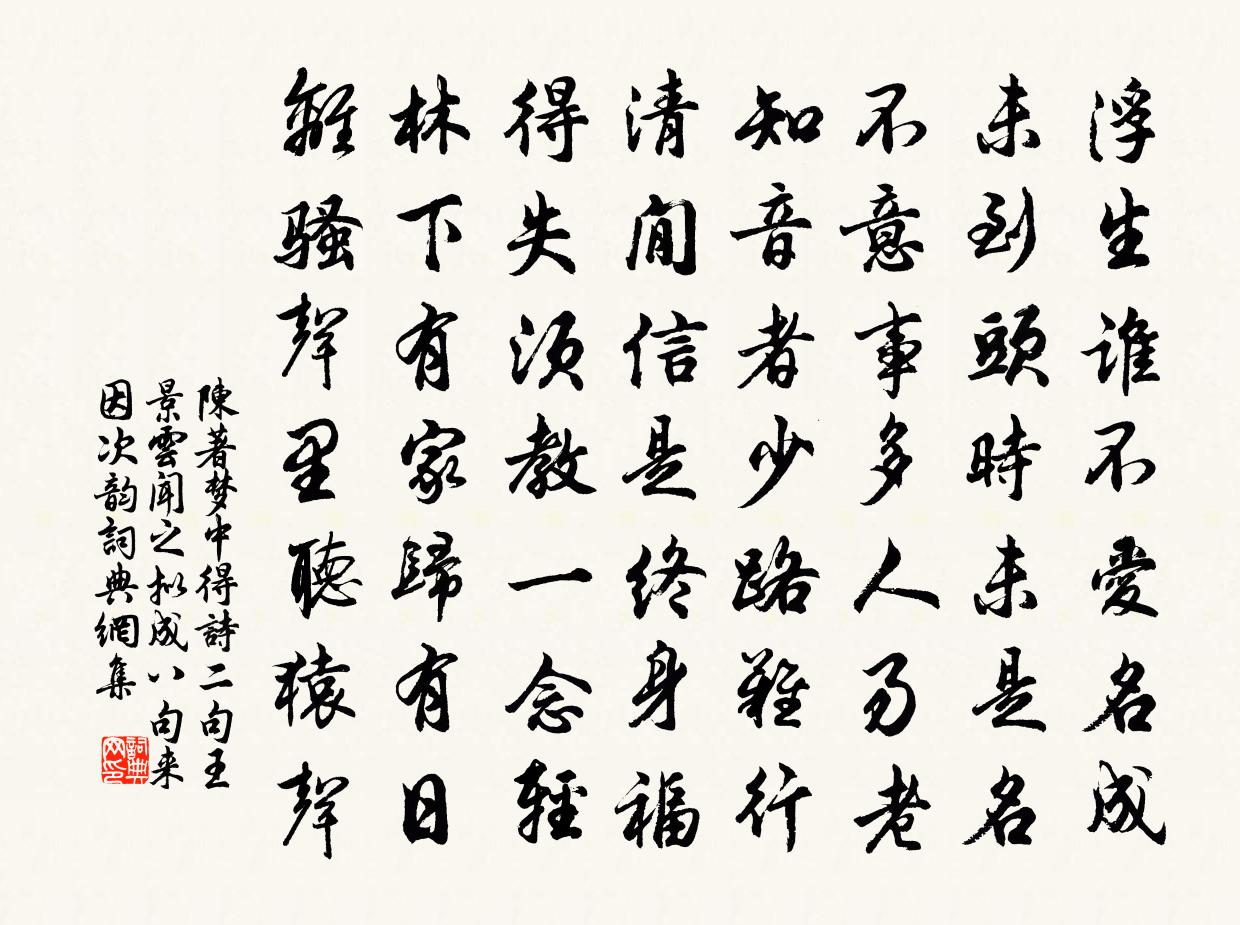 浮生誰不愛名成
未到頭時未是名
不意事多人易老
知音者少路難行
清閒信是終身福
得失須教一念輕
林下有家歸有日
離騷聲里聽猿聲
陳著梦中得詩二句王
景雲聞之拟成八句来
因次韵詞典網集
詞典网印